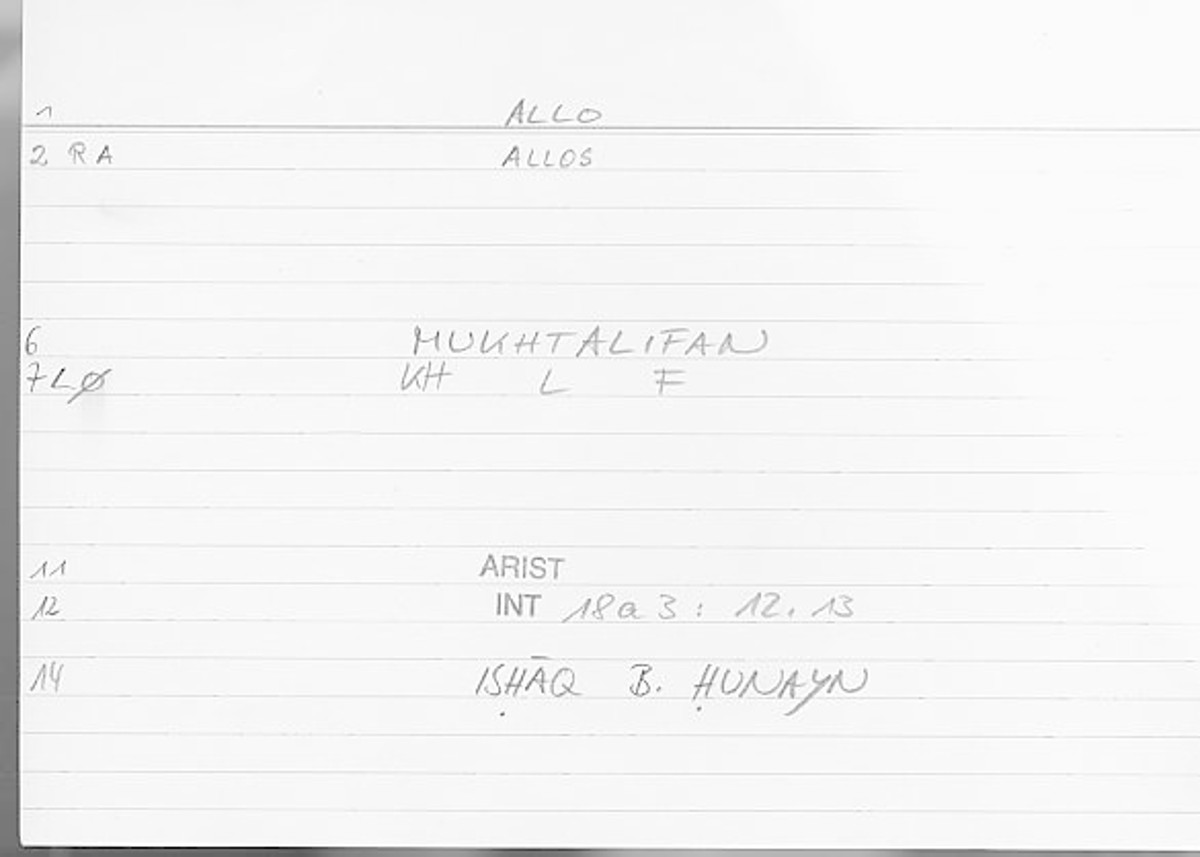 1 ALLO
2 RA ALLOS
6 MUKHTALIFAN
7 LØ KH L F
11 ARIST
12 INT 18a3: 12.13
14 ISḤĀQ B. ḤUNAYN